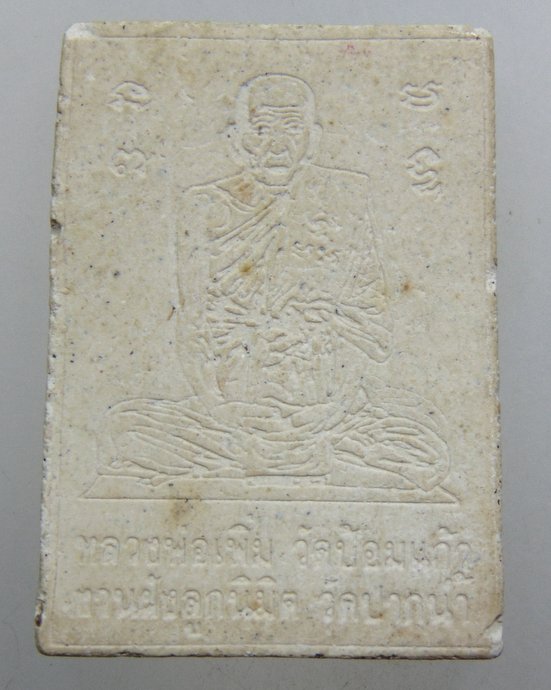 หลวงพ่อเพิ่ม วัดป้อมแก้ว
งานฝังลูกนิมิต วัดปากน้ำ